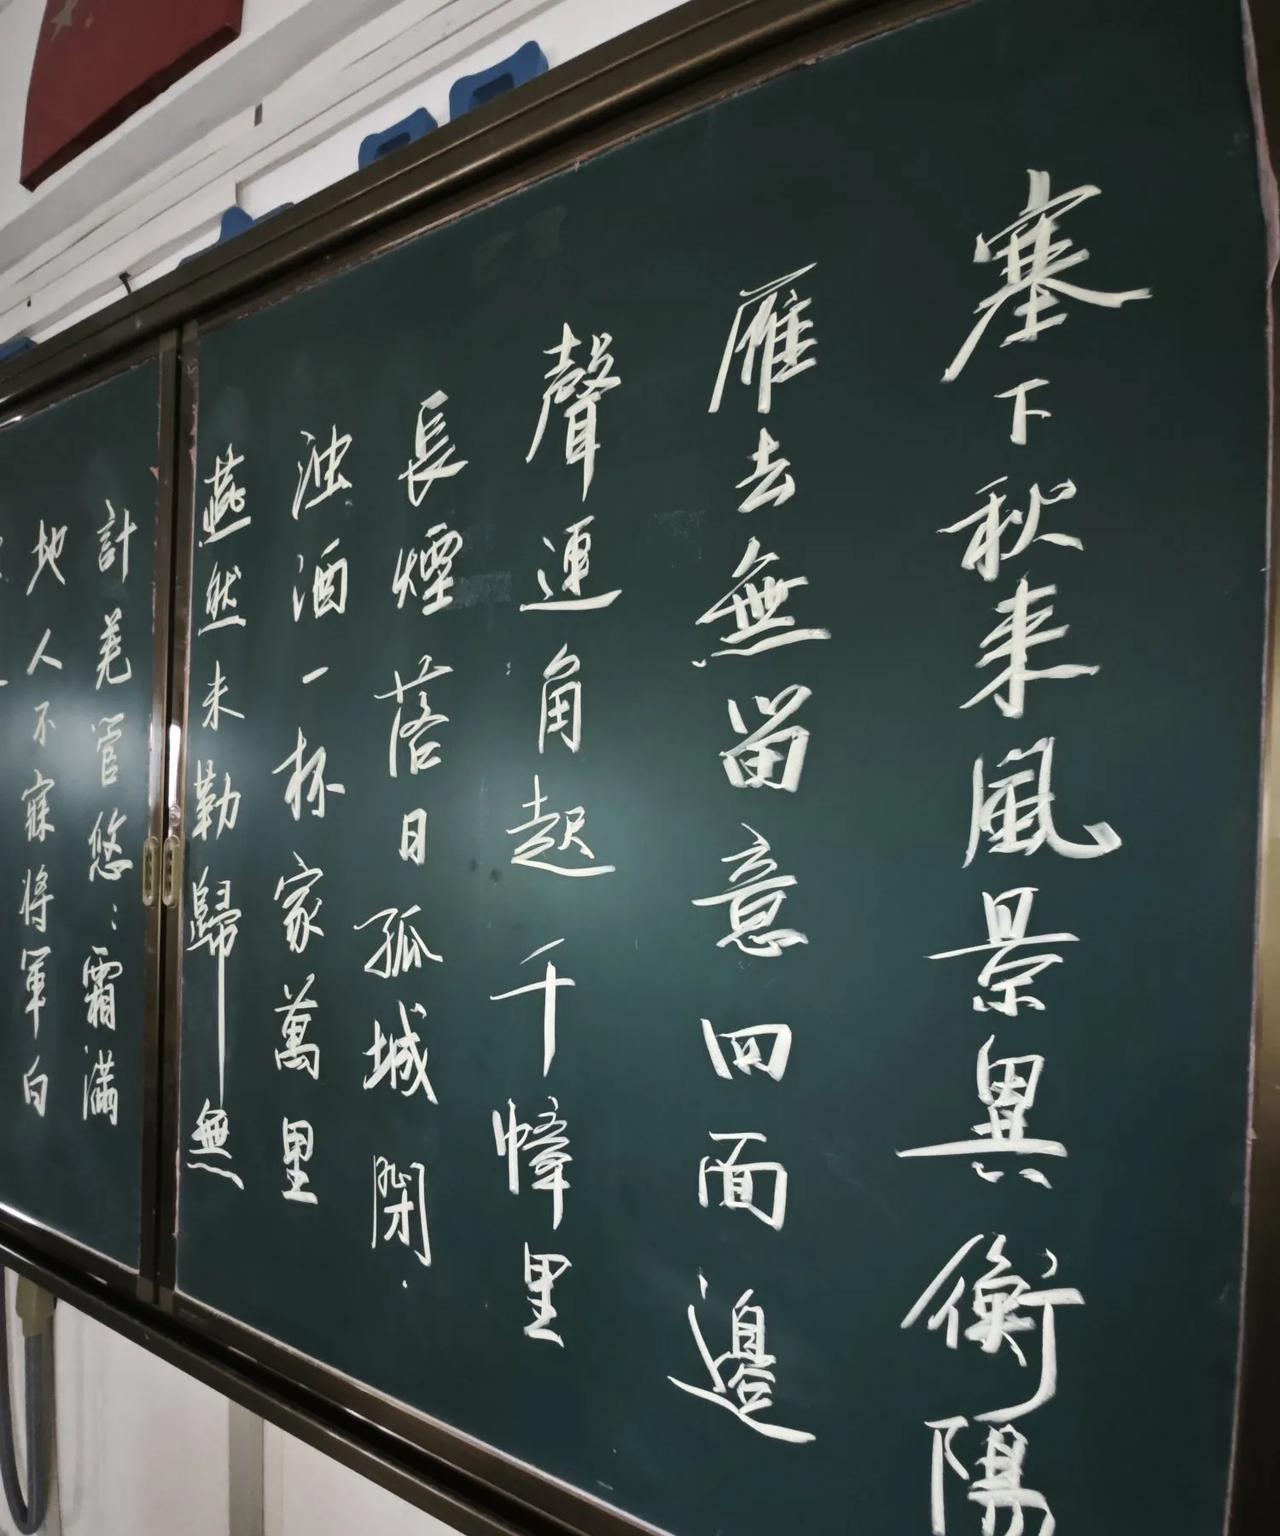 塞下秋来風景異衡陽
雁去無留意四面邊
聲連角起千幛里
長煙落日孤城閉
浊酒一杯家萬里
燕然未勒歸無
計羌管悠:霜满
地人不寐将軍白